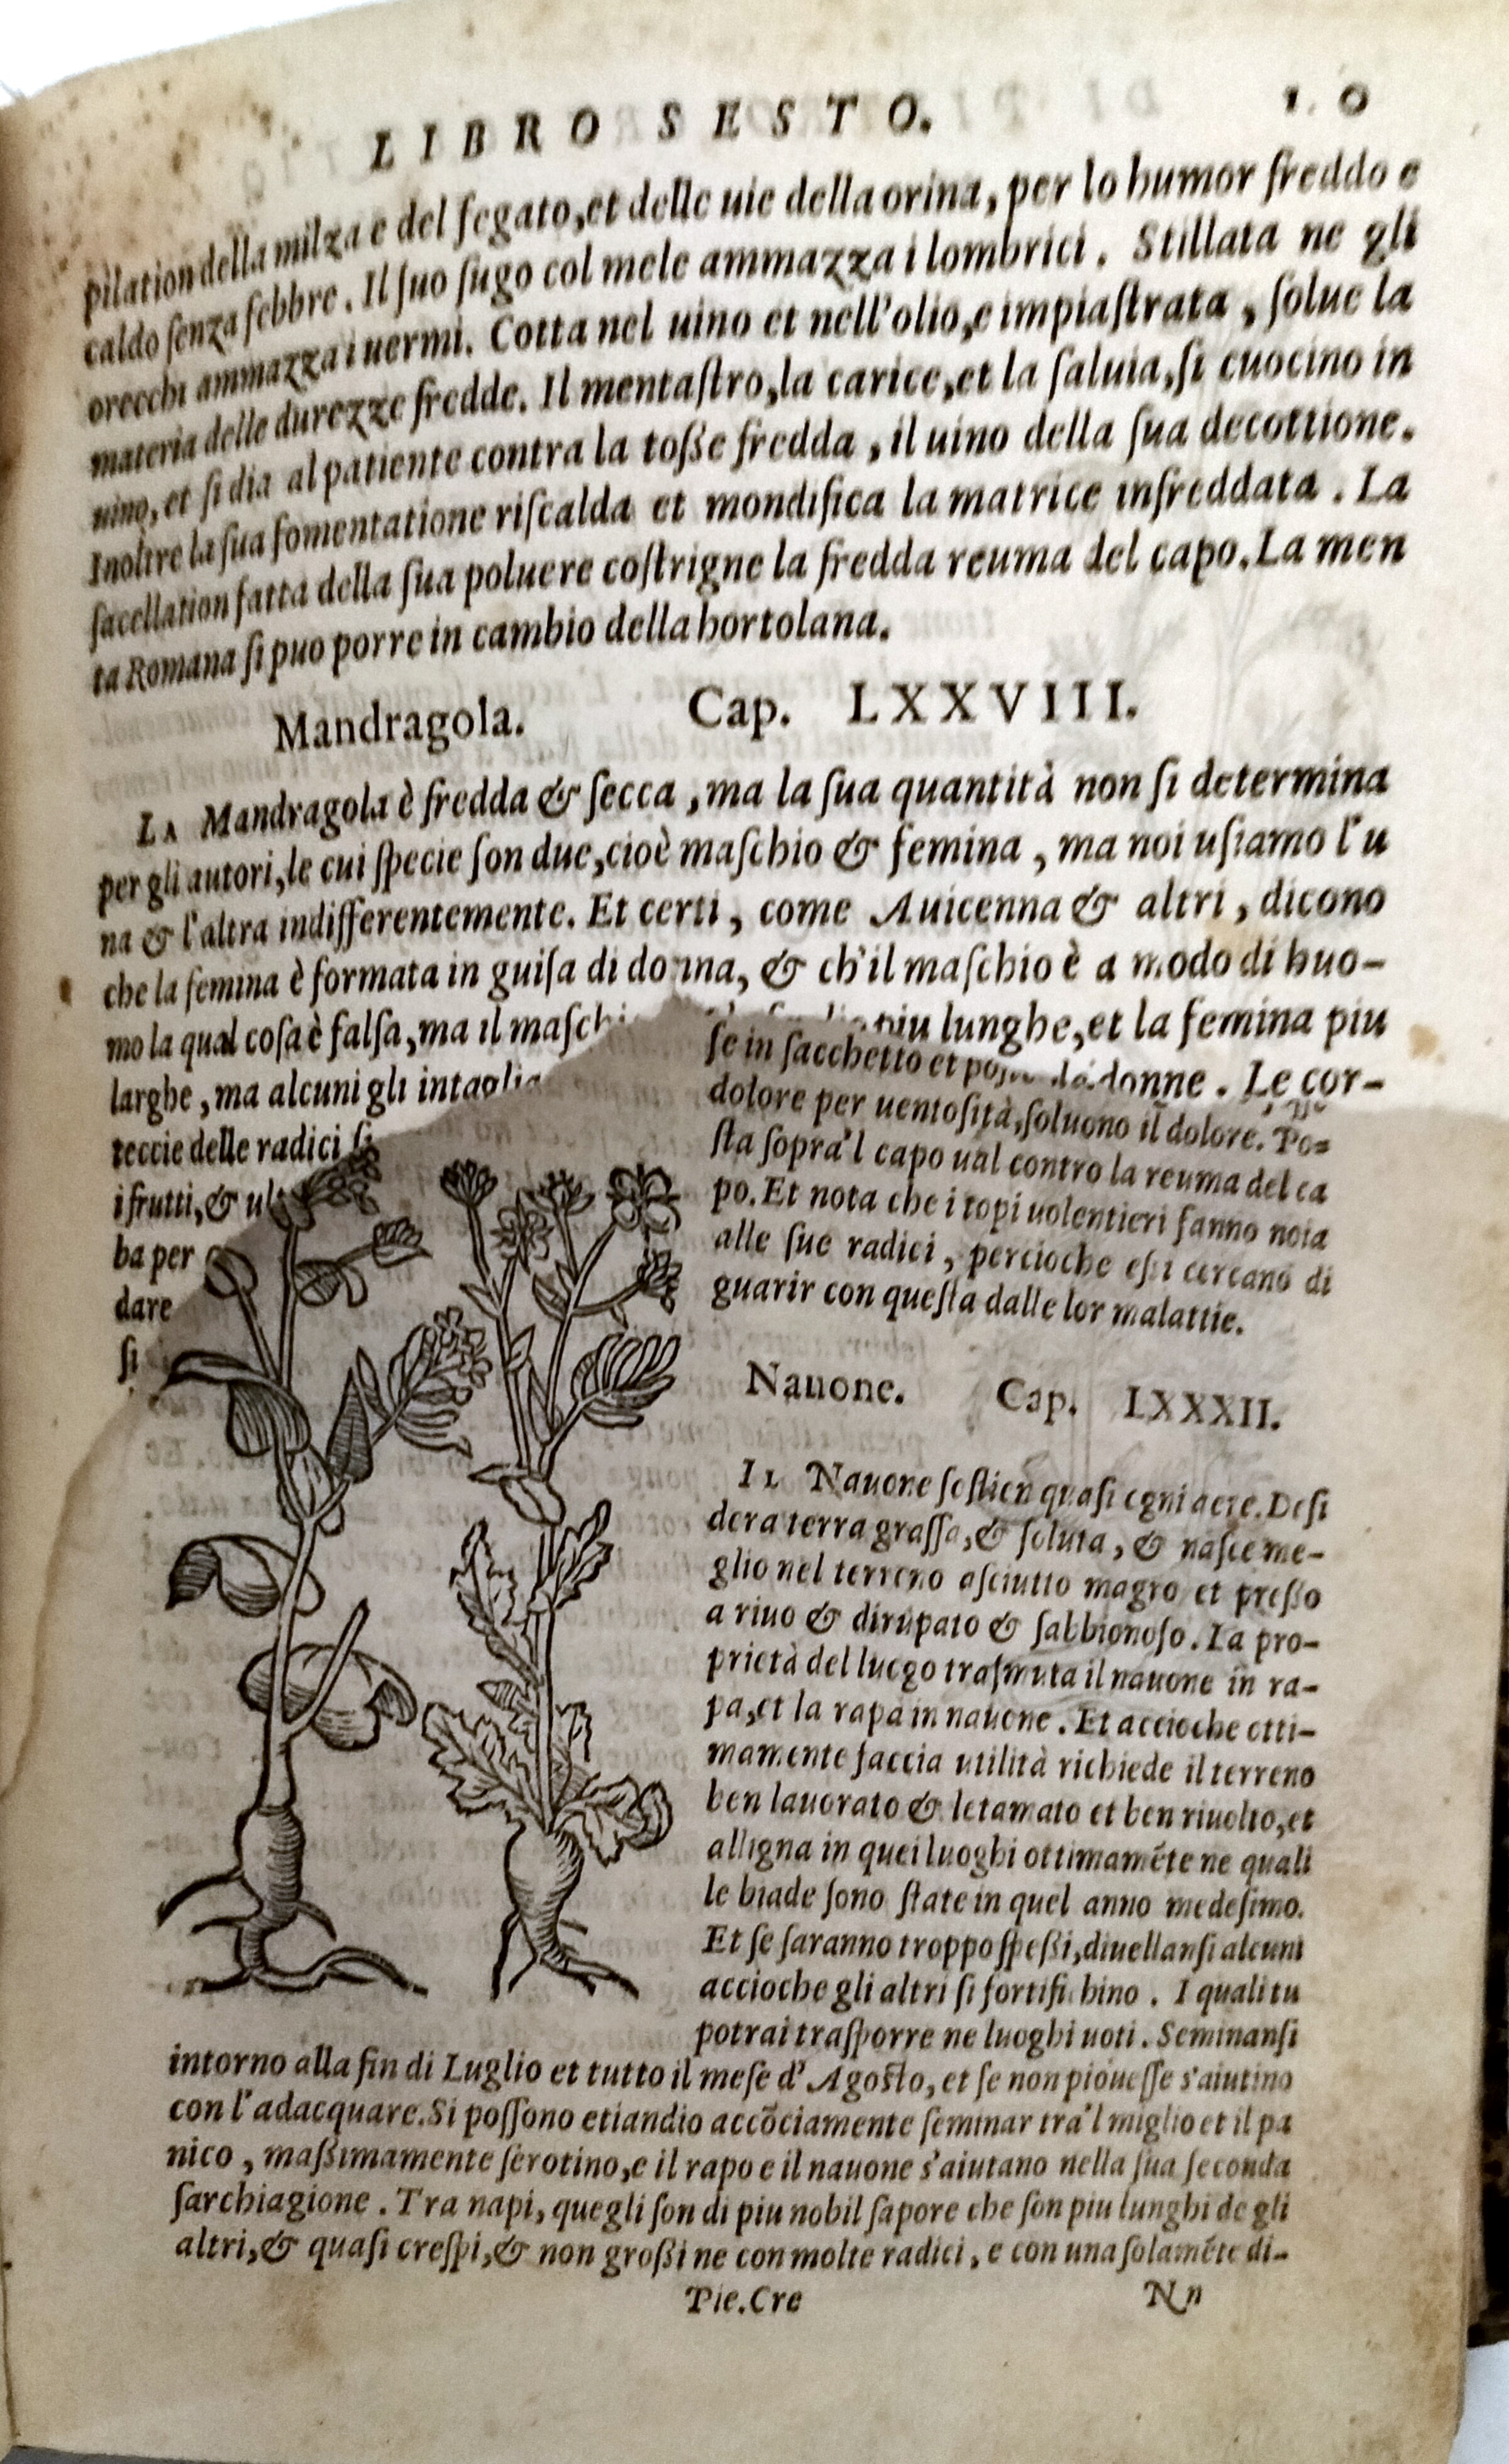 LIBRO SESTO.
pilation della milza e del fegato, et delle uie della orina, per lo humor freddo e
caldo senza febbre. Il suo sugo col mele ammazza i lombrici. Stillata ne gli
orecchi ammazza i uermi. Cotta nel uino et nell'olio, e impiastrata, solue la
materia delle durezze fredde. Il mentastro, la carice, et la saluia, si cuocino in
uino, et si dia al patiente contra la tosse fredda, il uino della sua decottione.
Inoltre la sua fomentatione riscalda et mondifica la matrice infreddata. La
sacellation fatta della sua poluere costrigne la fredda reuma del capo. La men
ta Romana si puo porre in cambio della hortolana.
Mandragola. Cap. LXXVIII.
LA Mandragola è fredda & secca, ma la sua quantità non si determina
per gli autori, le cui specie son due, cioè maschio & femina, ma noi usiamo l'u
na & l'altra indifferentemente. Et certi, come Auicenna & altri, dicono
che la femina è formata in guisa di donna, & ch'il maschio è a modo di huo-
mo la qual cosa è falsa, ma il maschi piu lunghe, et la femina piu
larghe, ma alcuni gli intaglia donne. Le cor-
teccie delle radici si
i frutti, & ul
ba per
dare
si
se in sacchetto et po
dolore per uentosità, soluono il dolore. Po=
sta sopra'l capo ual contro la reuma del ca
po. Et nota che i topi uolentieri fanno noia
alle sue radici, percioche essi cercano di
guarir con questa dalle lor malattie.
Nauone. Cap. LXXXII.
IL Nauone sostien quasi ogni aere. Desi
dera terra grassa, & soluta, & nasce me-
glio nel terreno asciutto magro et presso
a riuo & dirupato & sabbionoso. La pro-
prietà del luogo trasmuta il nauone in ra-
pa, et la rapa in nauone. Et accioche otti-
mamente faccia utilità richiede il terreno
ben lauorato & letamato et ben riuolto, et
alligna in quei luoghi ottimamēte ne quali
le biade sono state in quel anno medesimo.
Et se saranno troppo spessi, diuellansi alcuni
accioche gli altri si fortifichino. I quali tu
potrai trasporre ne luoghi uoti. Seminansi
intorno alla fin di Luglio et tutto il mese d'Agosto, et se non piouesse s'aiutino
con l'adacquare. Si possono etiandio accōciamente seminar tra'l miglio et il pa
nico, massimamente serotino, e il rapo e il nauone s'aiutano nella sua seconda
sarchiagione. Tra napi, quegli son di piu nobil sapore che son piu lunghi de gli
altri, & quasi crespi, & non grossi ne con molte radici, e con una solamēte di-
Pie. Cre Nn